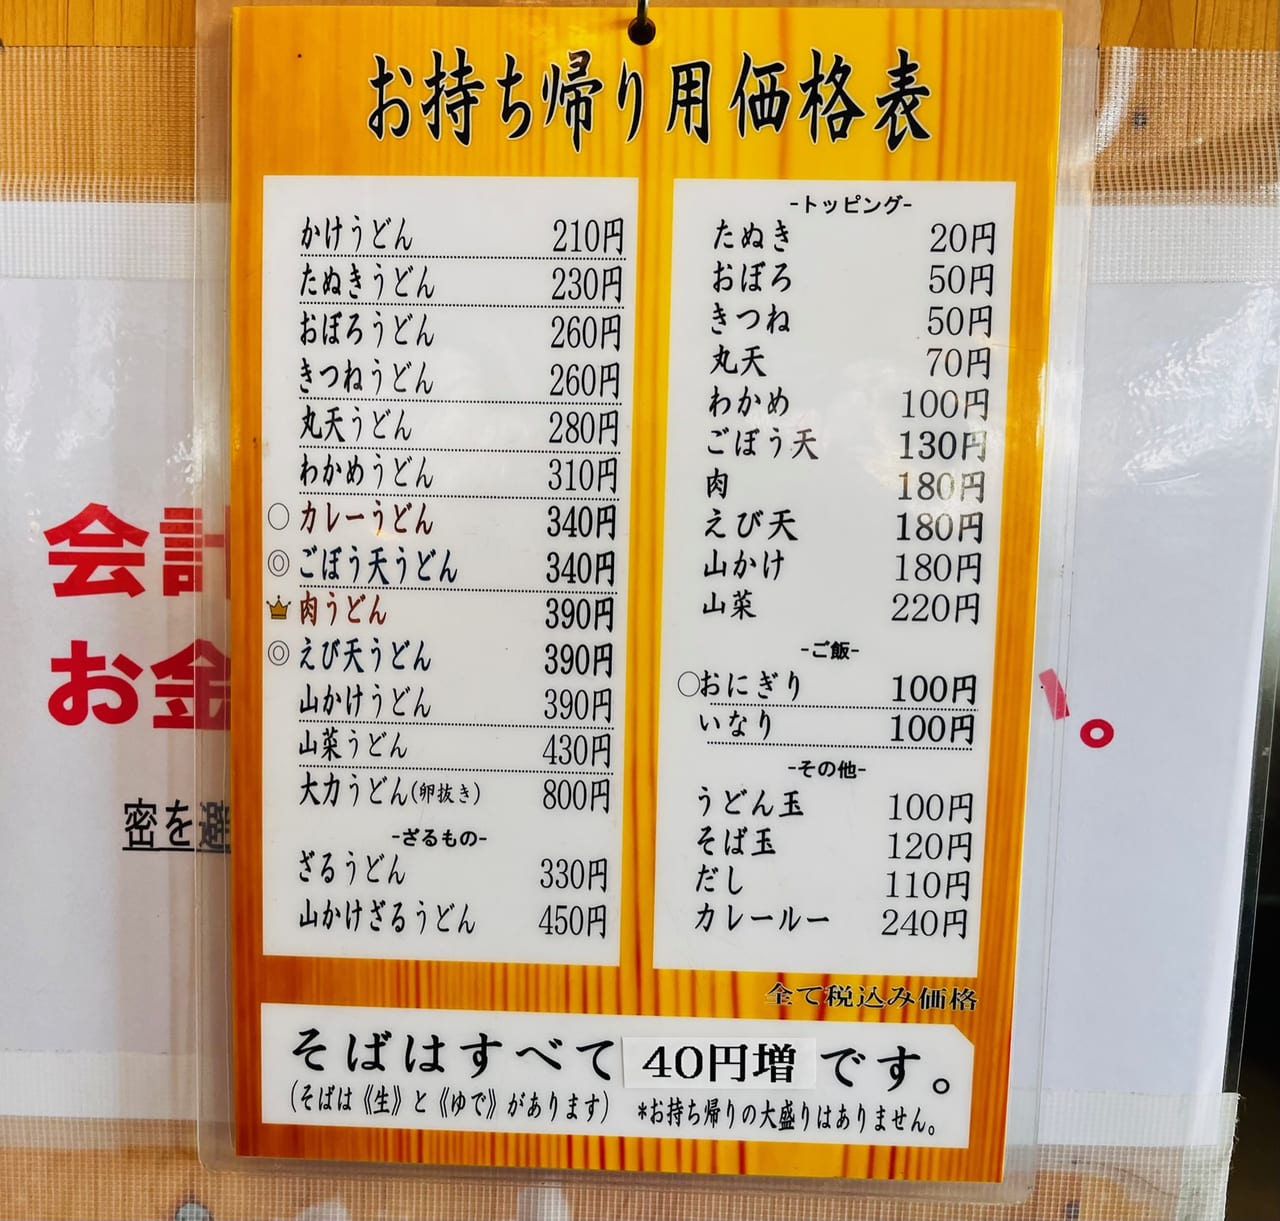 お持ち帰り用価格表
かけうどん 210円
たぬきうどん 230円
おぼろうどん 260円
きつねうどん 260円
丸天うどん 280円
わかめうどん 310円
○カレーうどん 340円
◎ごぼう天うどん 340円
肉うどん 390円
◎えび天うどん 390円
山かけうどん 390円
山菜うどん 430円
大力うどん(卵抜き) 800円
-ざるもの-
ざるうどん 330円
山かけざるうどん 450円
-トッピング-
たぬき 20円
おぼろ 50円
きつね 50円
丸天 70円
わかめ 100円
ごぼう天 130円
肉 180円
えび天 180円
山かけ 180円
山菜 220円
-ご飯-
○おにぎり 100円
いなり 100円
-その他-
うどん玉 100円
そば玉 120円
だし 110円
カレールー 240円
全て税込み価格
そばはすべて40円増です。
(そばは《生》と《ゆで》があります) *お持ち帰りの大盛りはありません。
会計
お金 い。
密を避